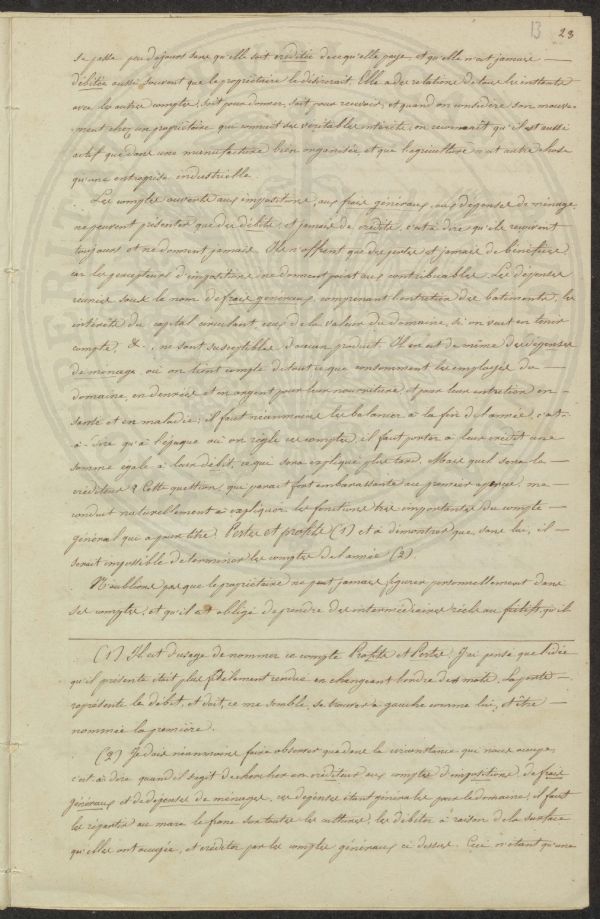 13 23
se passe peu de jours sans qu'elle soit créditée de ce qu'elle paye et qu'elle n'est jamais
débitée aussi souvent que le propriétaire le désirerait. Elle a des relations de tous les instants
avec les autres comptes, soit pour donner, soit pour recevoir, et quand on considère son mouve-
-ment chez un propriétaire qui connait ses véritables intérêts, on reconnaît qu'il est aussi
actif que dans une manufacture bien organisée, et que l'agriculture n'est autre chose
qu'une entreprise industrielle.
Les comptes ouverts aux impositions, aux frais généraux, aux dépenses de ménage,
ne peuvent présenter que des débits, et jamais de crédits, c'est à dire qu'ils reçoivent
toujours et ne donnent jamais. Ils n'offrent que des pertes et jamais de bénéfices,
car les percepteurs d'impositions ne donnent point aux contribuables. Les dépenses
réunies sous le nom de frais généraux, comprenant l'entretien des batiments, les
intérêts du capital circulant, ceux de la valeur du domaine, si on veut en tenir
compte, &., ne sont susceptibles d'aucun produit. Il en est de même des dépenses
de ménage, où on tient compte de tout ce que consomment les employés du
domaine, en denrées et en argent pour leur nourriture et pour leur entretien en
santé et en maladie; il faut néanmoins les balancer à la fin de l'année, c'est-
-à-dire qu'à l'époque où on règle ces comptes, il faut porter à leur crédit une
somme égale à leur débit, ce qui sera expliqué plus tard. Mais quel sera le
créditeur? Cette question, qui parait fort embarassante au premier aperçu, me
conduit naturellement à expliquer les fonctions très importantes du compte
général qui a pour titre, Pertes et profits (1) et à démontrer que, sans lui, il
serait impossible de terminer les comptes de l'année (2).
N'oublions pas que le propriétaire ne peut jamais figurer personnellement dans
ses comptes, et qu'il est obligé de prendre des intermédiaires réels ou fictifs, qu'il
(1) Il est d'usage de nommer ce compte Profits et Pertes. J'ai pensé que l'idée
qu'il présente était plus fidèlement rendue en changeant l'ordre des mots. La perte
représente le débit, et doit, ce me semble, se trouver à gauche comme lui, et être
nommée la première.
(2) Je dois néanmoins faire observer que dans la circonstance qui nous occupe,
c'est à dire quand il s'agit de chercher un créditeur aux comptes d'impositions, de frais
généraux et de dépenses de ménages, ces dépenses étant générales pour le domaine, il faut
les répartir au marc le franc sur toutes les cultures, les débiter à raison de la surface
qu'elles ont occupée, et créditer par les comptes généraux ci dessus. Ceci n'étant qu'une